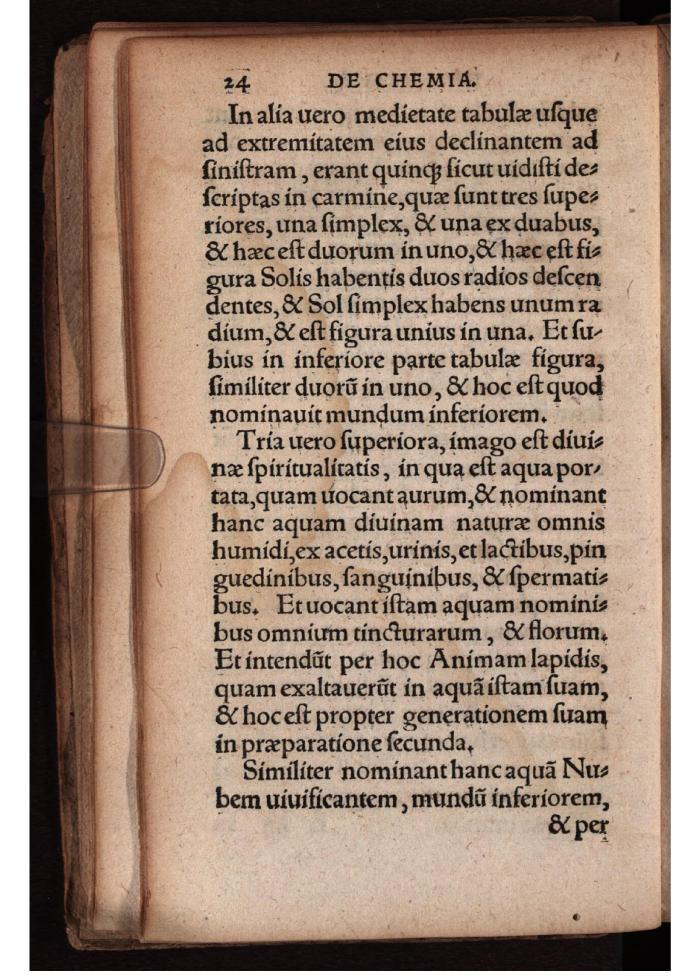 24 DE CHEMIA.
In alia uero medietate tabulæ uſque
ad extremitatem eius declinantem ad
ſiniſtram, erant quinqꝫ ſicut uidiſti de⸗
ſcriptas in carmine,quæ ſunt tres ſupe⸗
riores, una ſimplex, & una ex duabus,
& hæc eſt duorum in uno,& hæc eſt fi⸗
gura Solis habentis duos radios deſcen
dentes,& Sol ſimplex habens unum ra
dium,& eſt figura unius in una. Et ſu-
bius in inferiore parte tabulæ figura,
ſimiliter duorū in uno, & hoc eſt quod
nominauit mundum inferiorem.
Tria uero ſuperiora, imago eſt diui⸗
næ ſpiritualitatis, in qua eſt aqua por-
tata,quam uocant aurum,& nominant
hanc aquam diuinam naturæ omnis
humidi,ex acetis,urinis,et lactibus,pin
guedinibus, ſanguinibus, & ſpermati⸗
bus. Et uocant iſtam aquam nomini⸗
bus omnium tincturarum, & florum.
Et intendūt per hoc Animam lapidis,
quam exaltauerūt in aquā iſtam ſuam,
& hoc eſt propter generationem ſuam
in præparatione ſecunda.
Similiter nominant hanc aquā Nu⸗
bem uiuificantem, mundū inferiorem,
& per